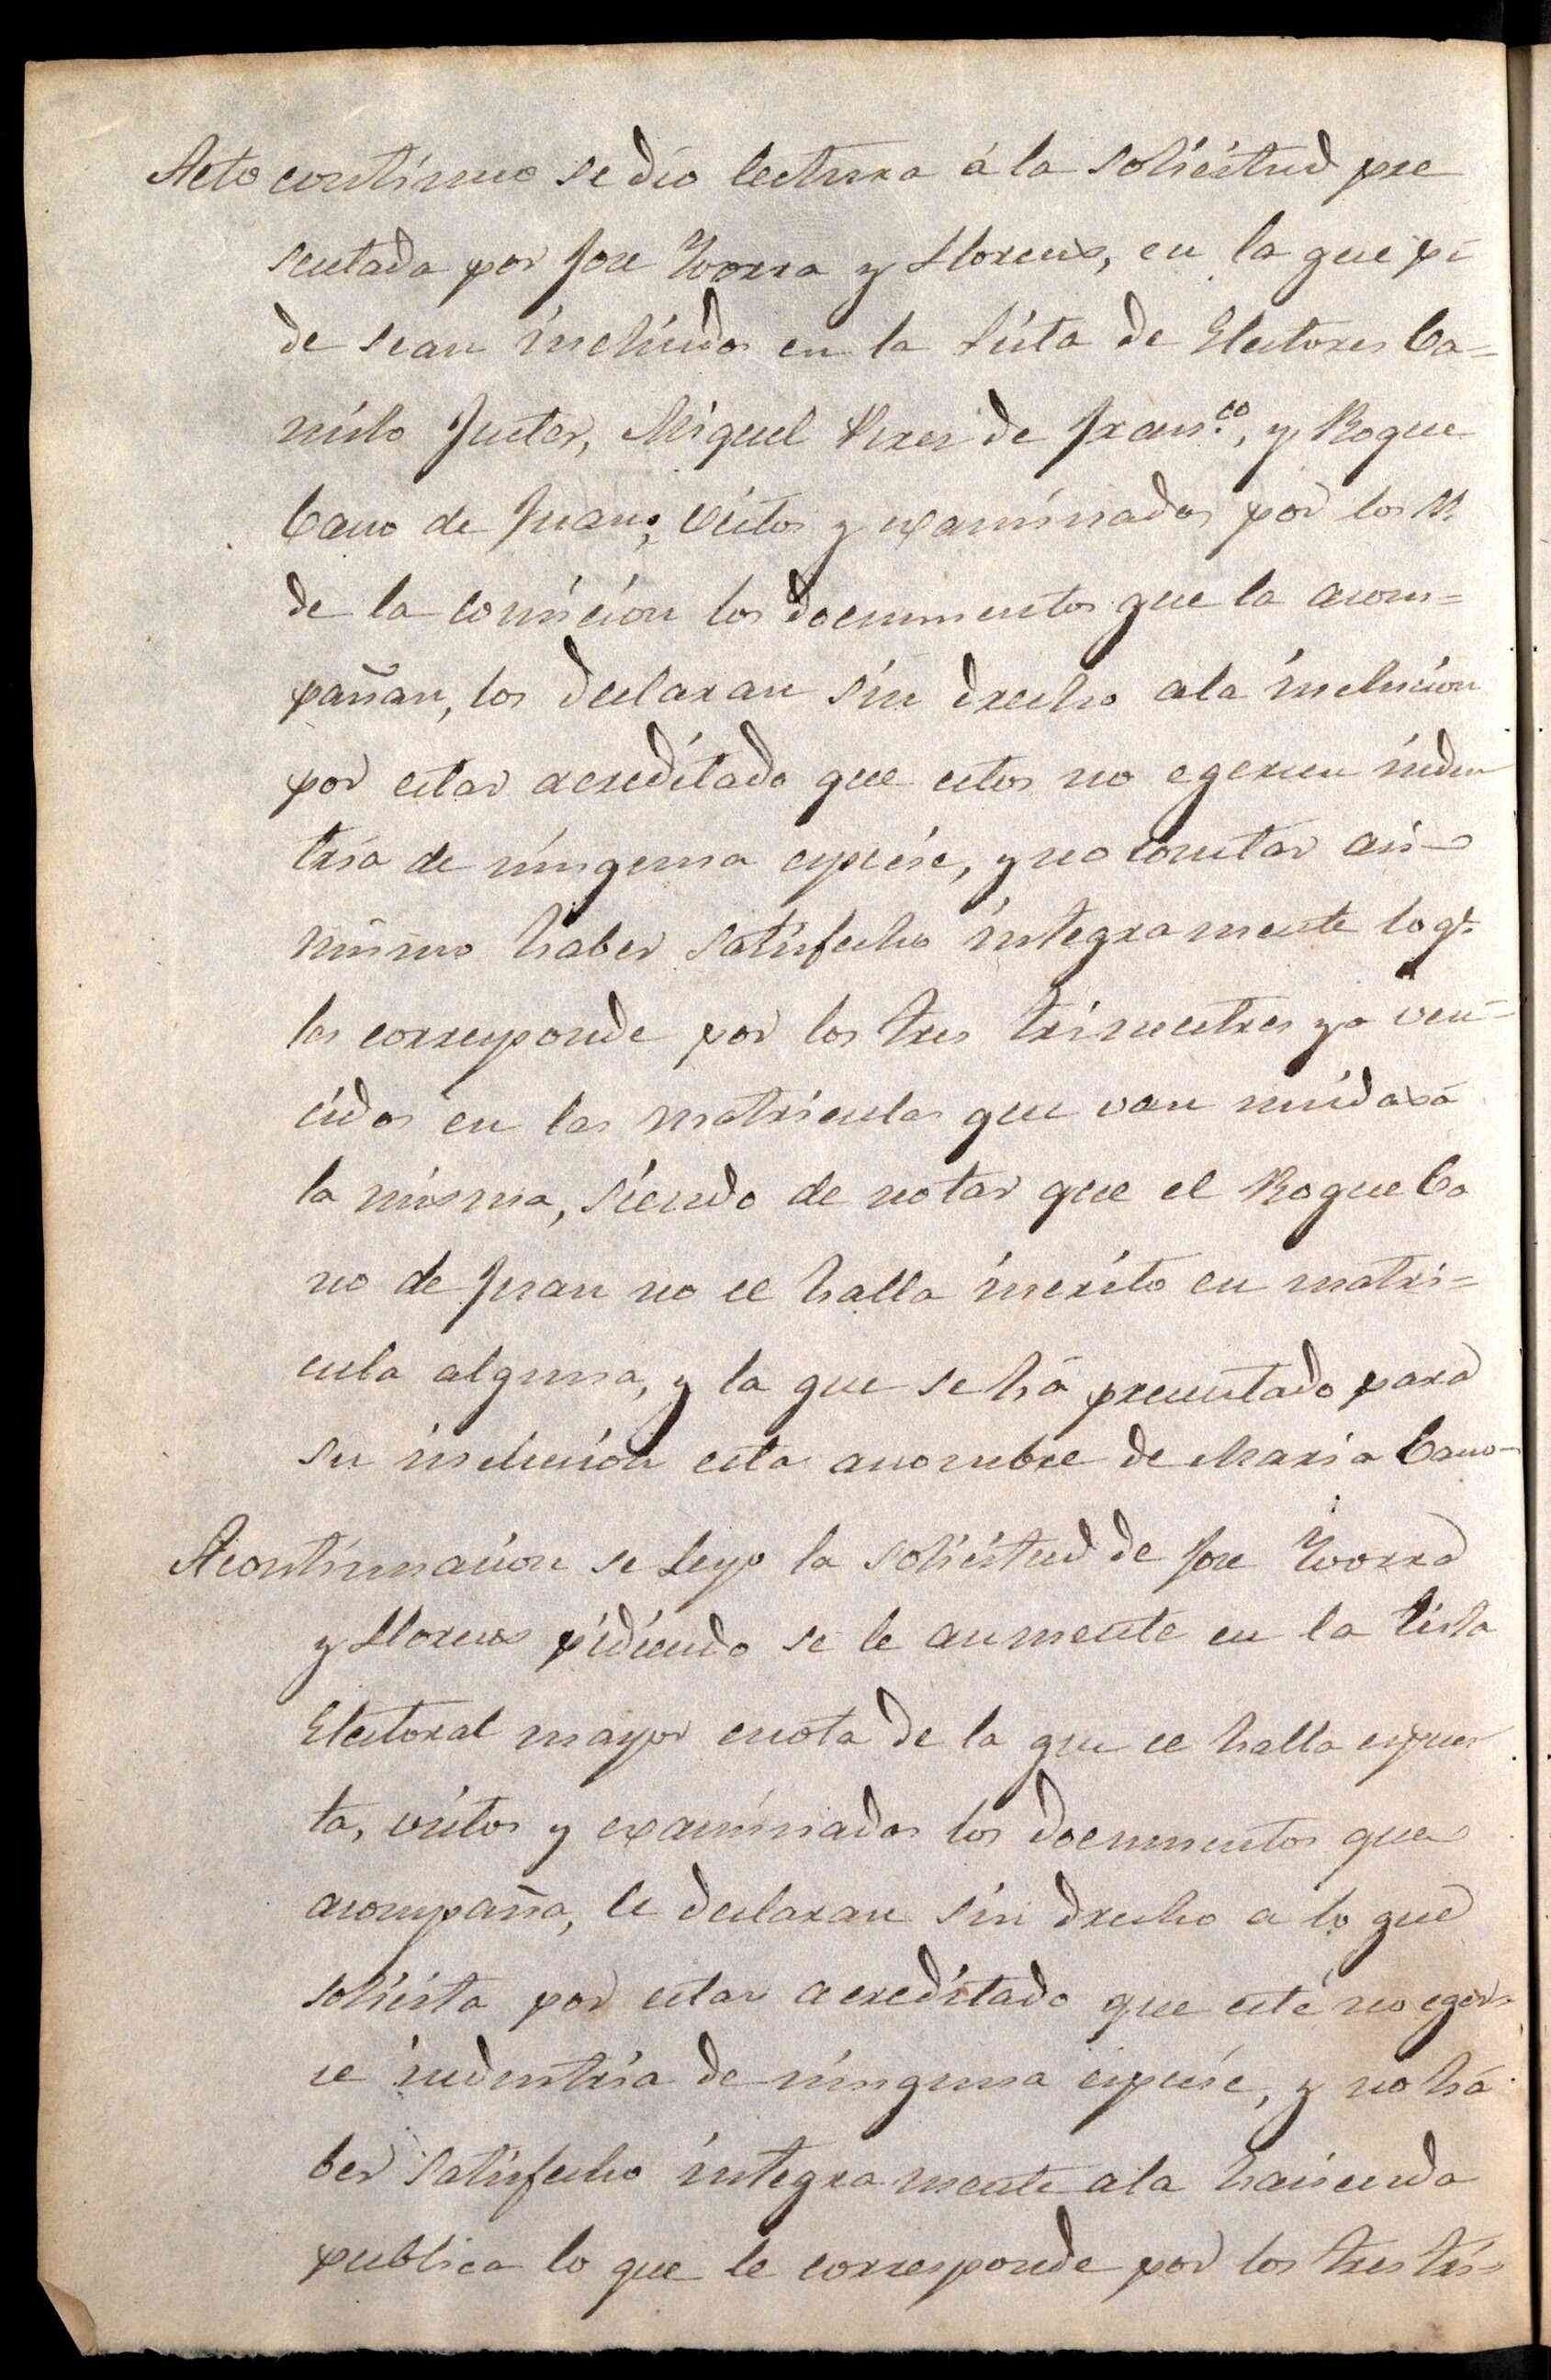 Acto continuo se dio lectura á la solicitud pre
sentada por Jose Yvorra y Llorens, en la que pi
de sean incluidos en la lista de Electores Ca=
milo Juster, Miguel Pires de Fran.co, y Roque
Cano de Juan; vistos y examinados por los SS.
de la comision los documentos que la acom=
pañan, los declaran sin drecho ala inclusion
por estar acreditado que estos no egercen indus
tria de ninguna especie, y no constar asi-
mismo haber satisfecho integramente lo q.e
les corresponde por los tres trimestres ya ven=
cidos en las matriculas que van unidas á
la misma, siendo de notar que el Roque Ca
no de Juan no se halla inscrito en matri=
cula alguna, y la que se há presentado para
su inclusion esta anombre de Maria Cano-
Acontinuacion se leyo la solicitud de Jose Yvorra
y Llorens pidiendo se le aumente en la lista
Electoral mayor cuota de la que se halla expues
ta, vistos y examinados los documentos que
acompaña, le declaran sin drecho a lo que
solicita por estar acreditado que esté no eger=
ce industria de ninguna especie, y no há
ber satisfecho integramente ala hacienda
publica lo que le corresponde por los tres tri=